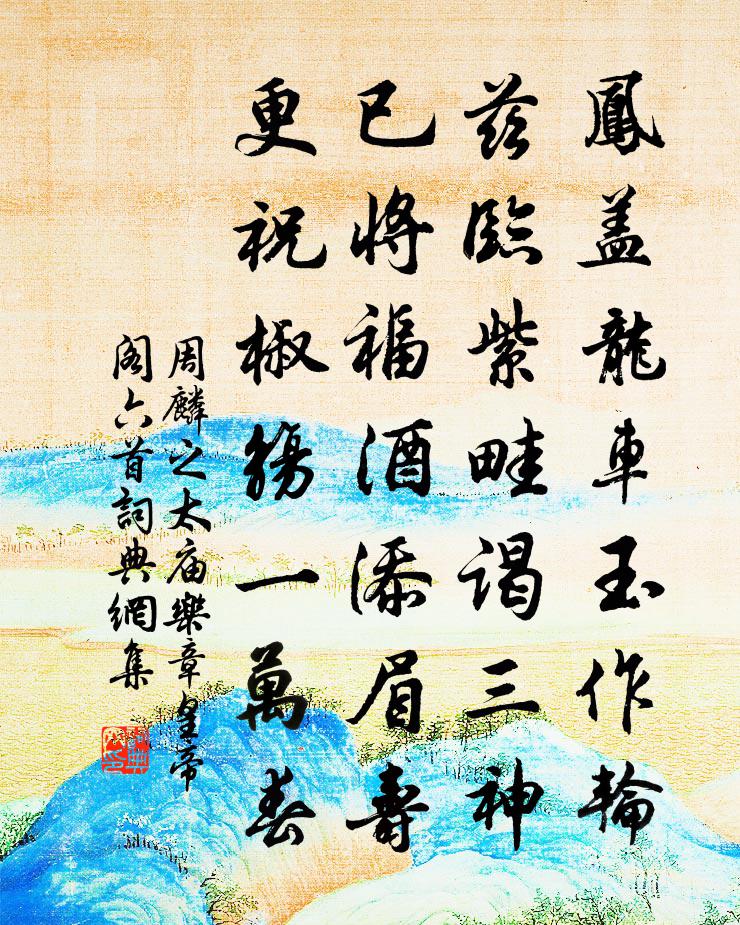 鳳盖龍車玉作輪
茲臨紫畦謁三神
已將福酒添眉壽
更祝椒觴一萬春
周麟之太庙樂章皇帝
阁六首詞典網集